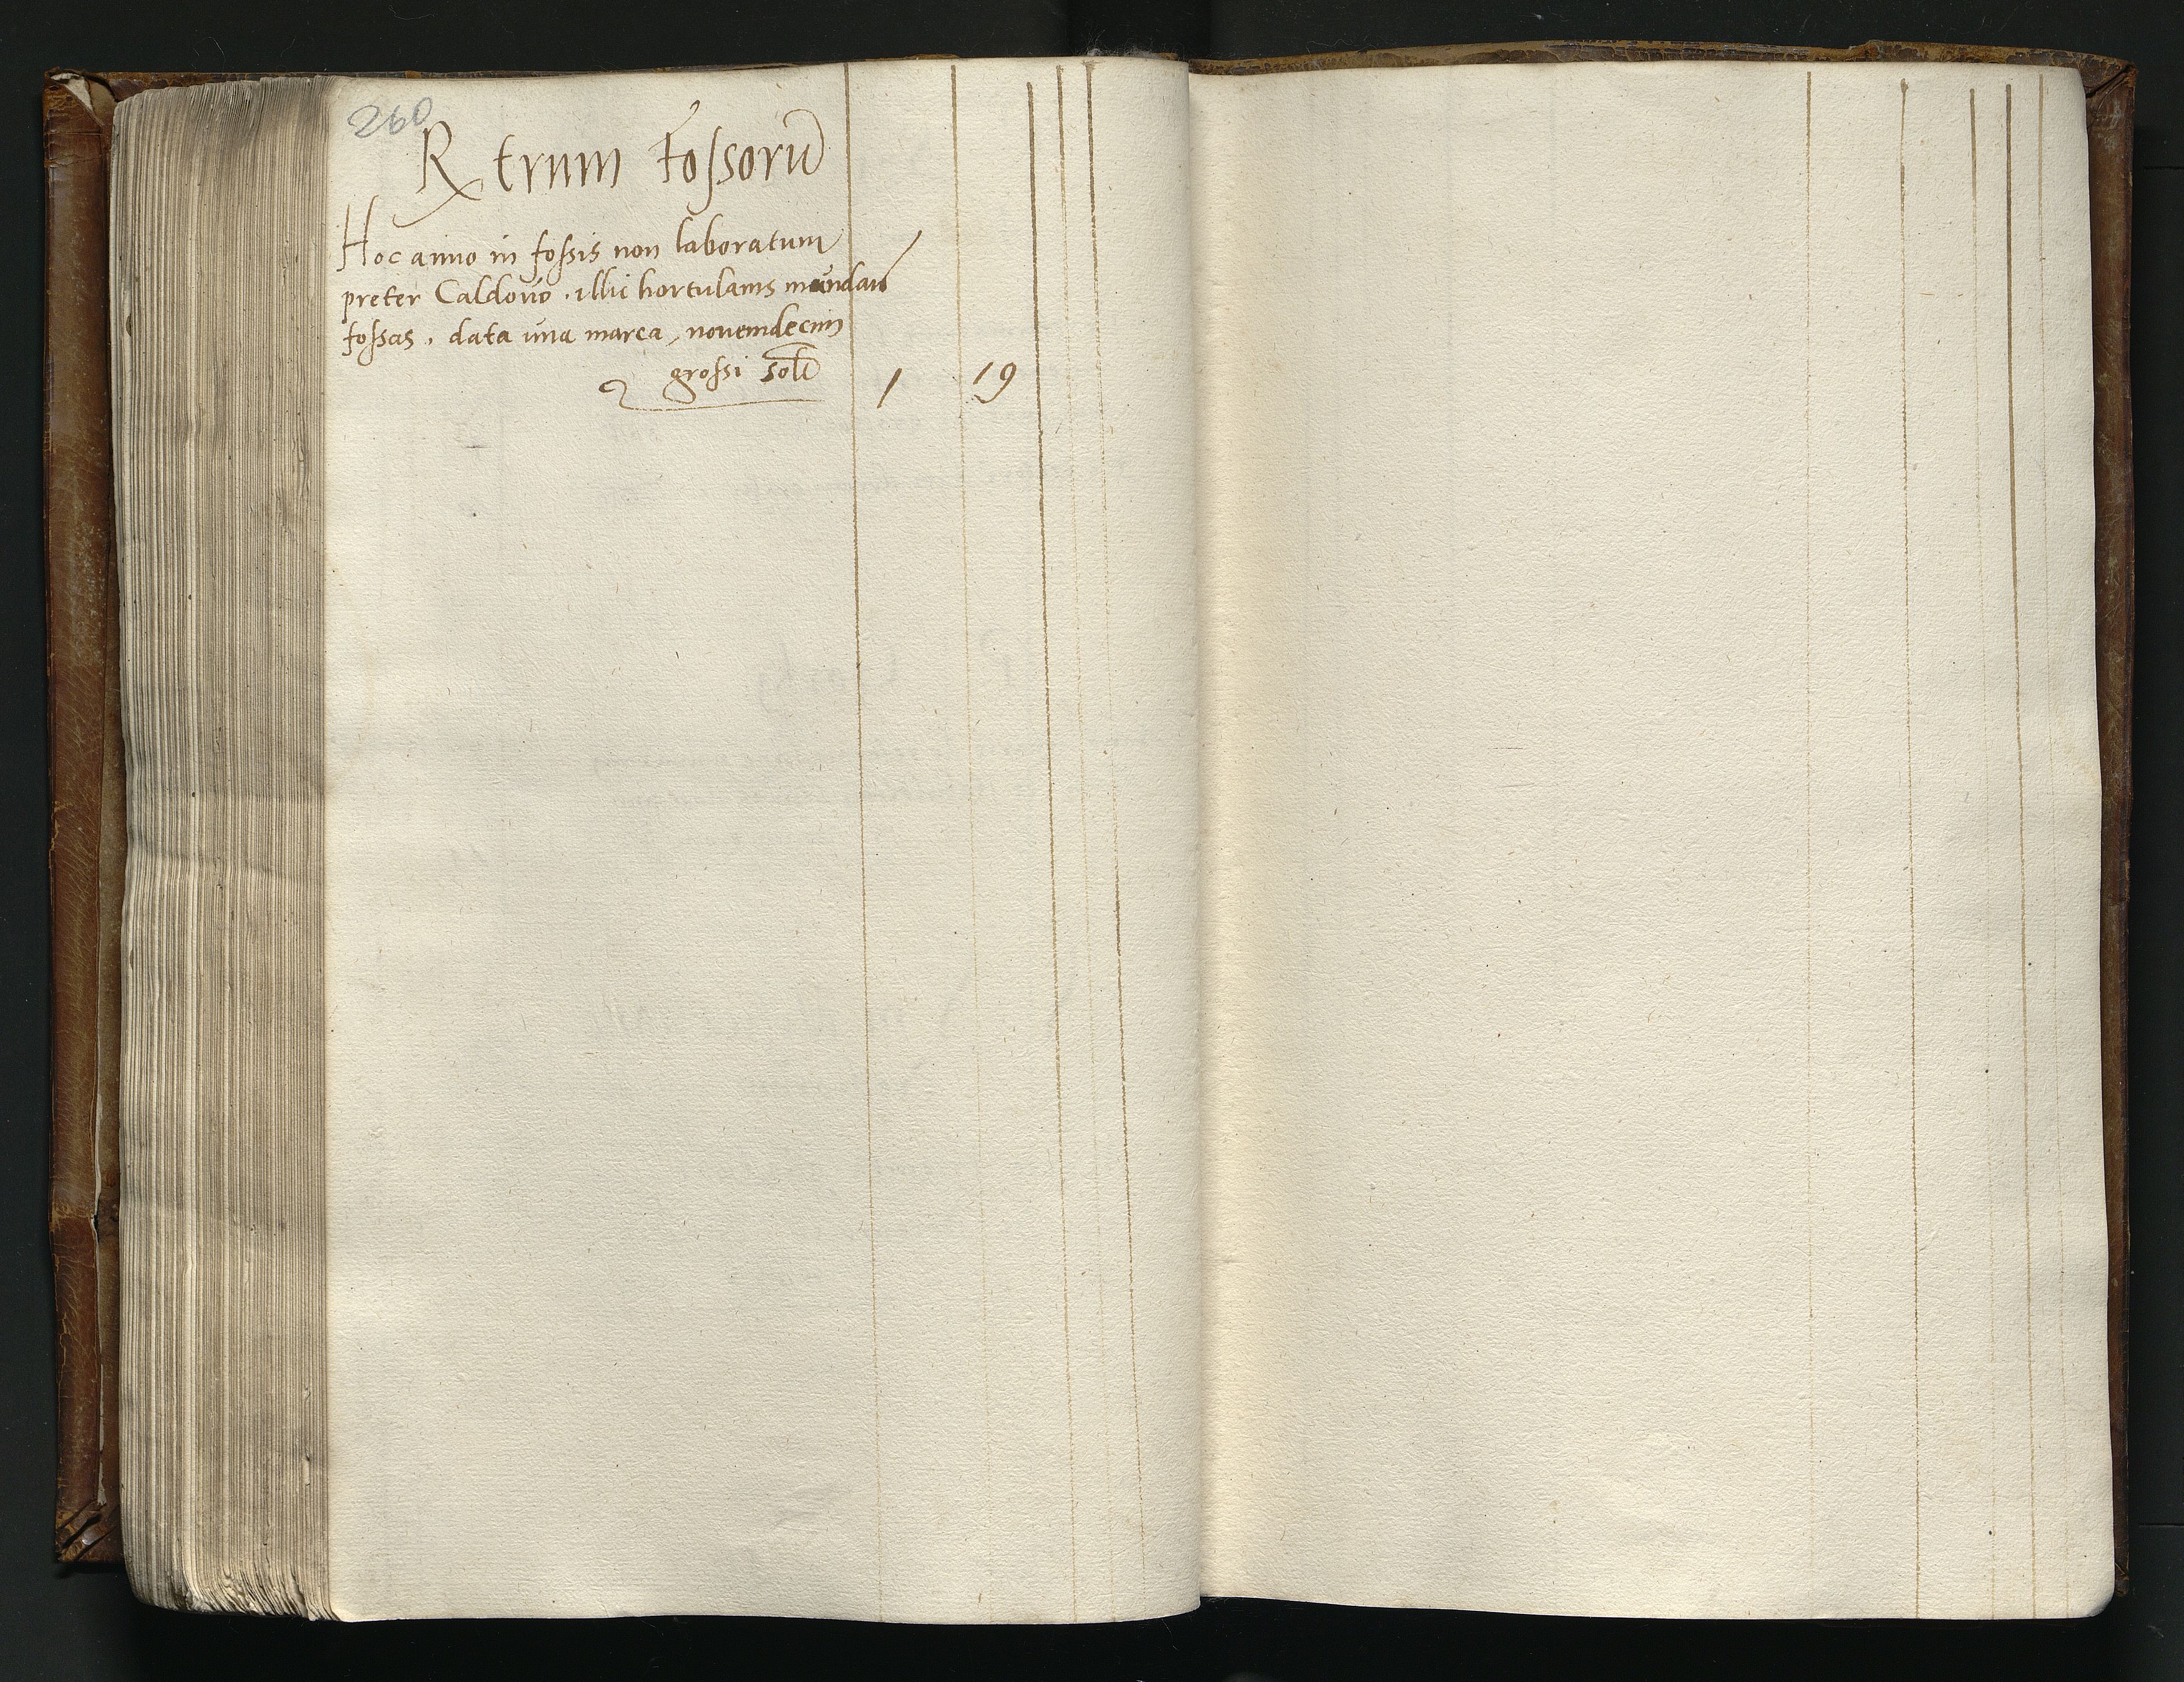 260
Rx trium fossorū
Hoc anno in fossis non laboratum
preter Caldovo . illic hortulanis mundan
fossas . data una marca, novemdecim
grossi
1 19